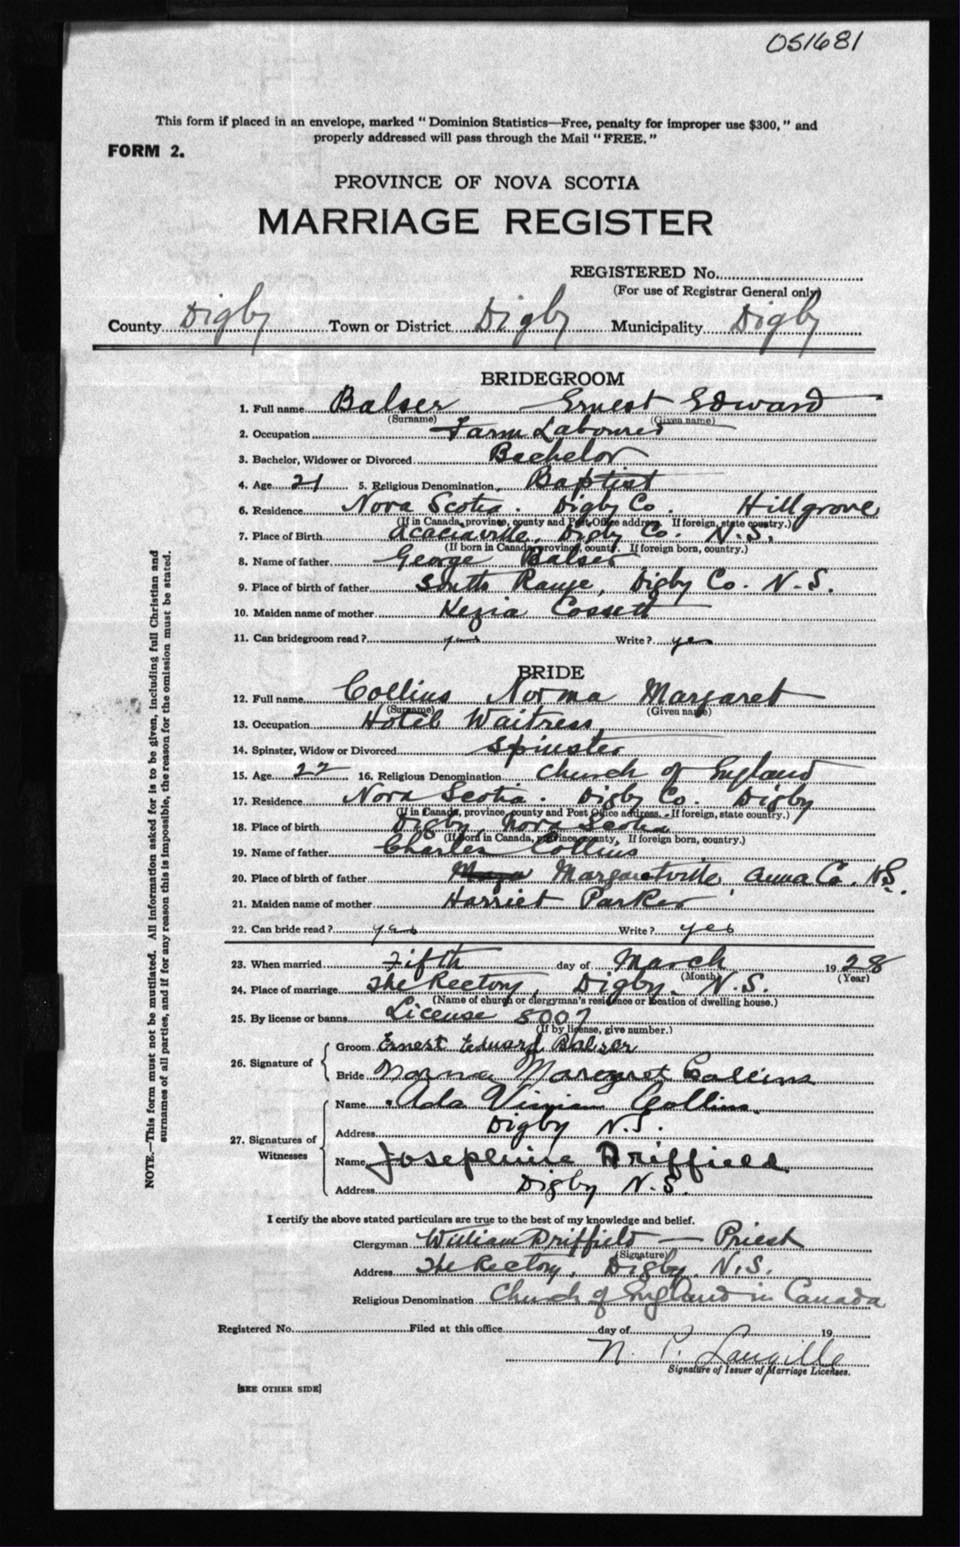 051681
This form if placed in an envelope, marked "Dominion Statistics—Free, penalty for improper use $300," and
properly addressed will pass through the Mail "FREE."
FORM 2.
PROVINCE OF NOVA SCOTIA
MARRIAGE REGISTER
REGISTERED No.
(For use of Registrar General only)
County Digby Town or District Digby Municipality Digby
BRIDEGROOM
1. Full name Balser Ernest Edward
(Surname) (Given name)
2. Occupation Farm Labourer
3. Bachelor, Widower or Divorced Bachelor
4. Age 21 5. Religious Denomination Baptist
6. Residence Nova Scotia. Digby Co. Hillgrove
(If in Canada, province, county and Post Office address. If foreign, state country.)
7. Place of Birth Acaciaville, Digby Co. N.S.
(If born in Canada, province, county. If foreign born, country.)
8. Name of father George Balser
9. Place of birth of father South Range, Digby Co. N.S.
10. Maiden name of mother Kezia Cossett
11. Can bridegroom read? yes Write? yes
BRIDE
12. Full name Collins Norma Margaret
(Surname) (Given name)
13. Occupation Hotel Waitress
14. Spinster, Widow or Divorced Spinster
15. Age 22 16. Religious Denomination Church of England
17. Residence Nova Scotia. Digby Co. Digby
(If in Canada, province, county and Post Office address. - If foreign, state country.)
18. Place of birth Digby, Nova Scotia
(If born in Canada, province, county, If foreign born, country.)
19. Name of father Charles Collins
20. Place of birth of father Margaretville, Anna Co. N.S.
21. Maiden name of mother Harriet Parker
22. Can bride read? yes Write? yes
23. When married Fifth day of March 1928
(Month) (Year)
24. Place of marriage The Rectory, Digby. N.S.
(Name of church or clergyman's residence or location of dwelling house.)
25. By license or banns License 8007
(If by license, give number.)
26. Signature of
Groom Ernest Edward Balser
Bride Norma Margaret Collins
27. Signatures of Witnesses
Name Ada Vivian Collins.
Address Digby N.S.
Name Josephine Driffield
Address Digby N.S.
I certify the above stated particulars are true to the best of my knowledge and belief.
Clergyman William Driffield — Priest
(Signature)
Address The Rectory, Digby N.S.
Religious Denomination Church of England in Canada
Registered No. Filed at this office day of 19
N. P. Langille
Signature of Issuer of Marriage Licenses.
[SEE OTHER SIDE]
NOTE.—This form must not be mutilated. All information asked for is to be given, including full Christian and
surnames of all parties, and if for any reason this is impossible, the reason for the omission must be stated.